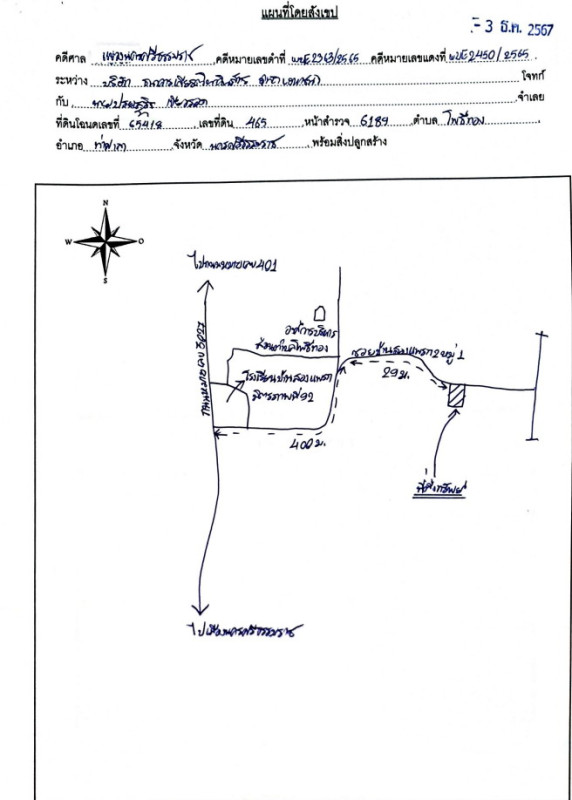 แผนที่โดยสังเขป
- 3 ธ.ค. 2567
คดีศาล แพ่งนครศรีธรรมราช คดีหมายเลขดำที่ ผบE2363/2565 คดีหมายเลขแดงที่ ผบE2450/2565
ระหว่าง บริษัท จำกัด (มหาชน) โจทก์
กับ จำเลย
ที่ดินโฉนดเลขที่ 65418 เลขที่ดิน 465 หน้าสำรวจ 6189 ตำบล โพธิ์ทอง
อำเภอ ท่าศาลา จังหวัด นครศรีธรรมราช พร้อมสิ่งปลูกสร้าง
N
W O
S
ไปถนนหมายเลข 401
ถนนหมายเลข 3027
องค์การบริหาร
ส่วนตำบลโพธิ์ทอง
ซอยบ้านสองแพรก 2 หมู่ 1
โรงเรียนบ้านสองแพรก
มิตรภาพที่ 92
29 ม.
400 ม.
ที่ตั้งทรัพย์
ไปเมืองนครศรีธรรมราช